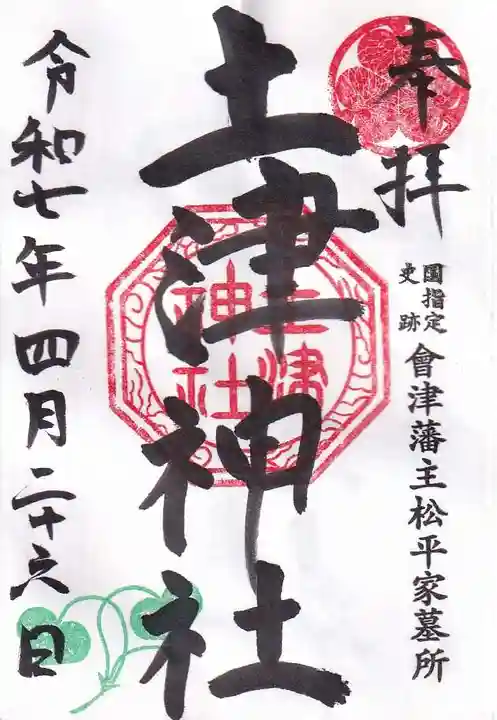 奉拝
国指定
史跡
會津藩主松平家墓所
土津神社
土津
神社
令和七年四月二十六日